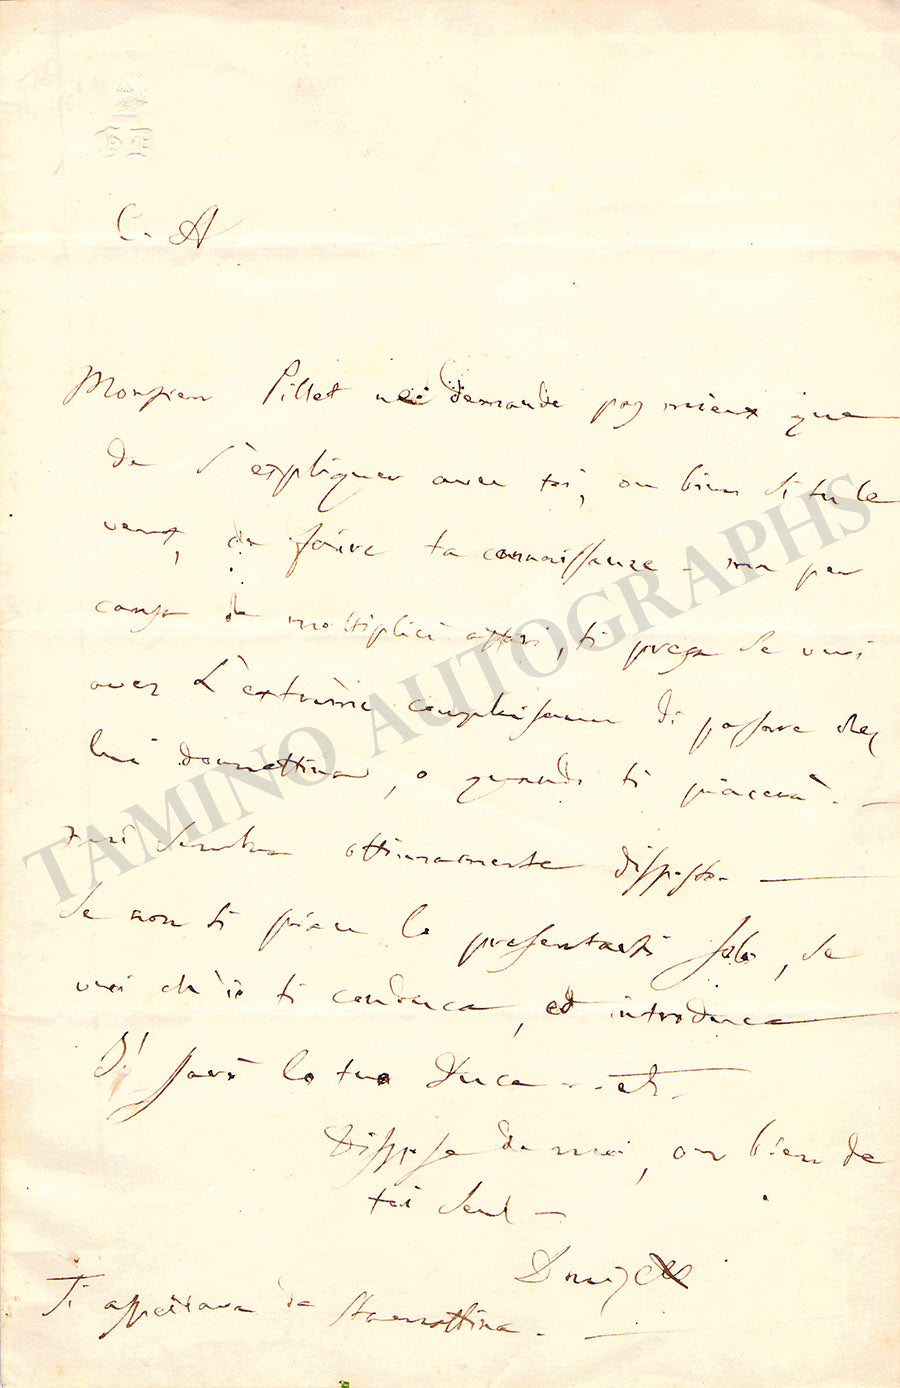 GD
C. A
Monsieur Pillet ne demande pas mieux que
de s'expliquer avec toi, ou bien si tu le
veux, de faire ta connaissance - ma per
causa de moltiplici affari, ti prega se vuoi
aver l'extrème complaisance di passare chez
lui domattina, o quando ti piacerà. -
sembra ottimamente disposto -
Se non ti piace lo presentarti solo, se
vuoi ch'io ti conduca, ed introduca
sarò lo tuo Duca
Dispose de moi, ou bien de
toi seul -
Donizetti
Ti aspettava da stamattina. -
TAMINO AUTOGRAPHS